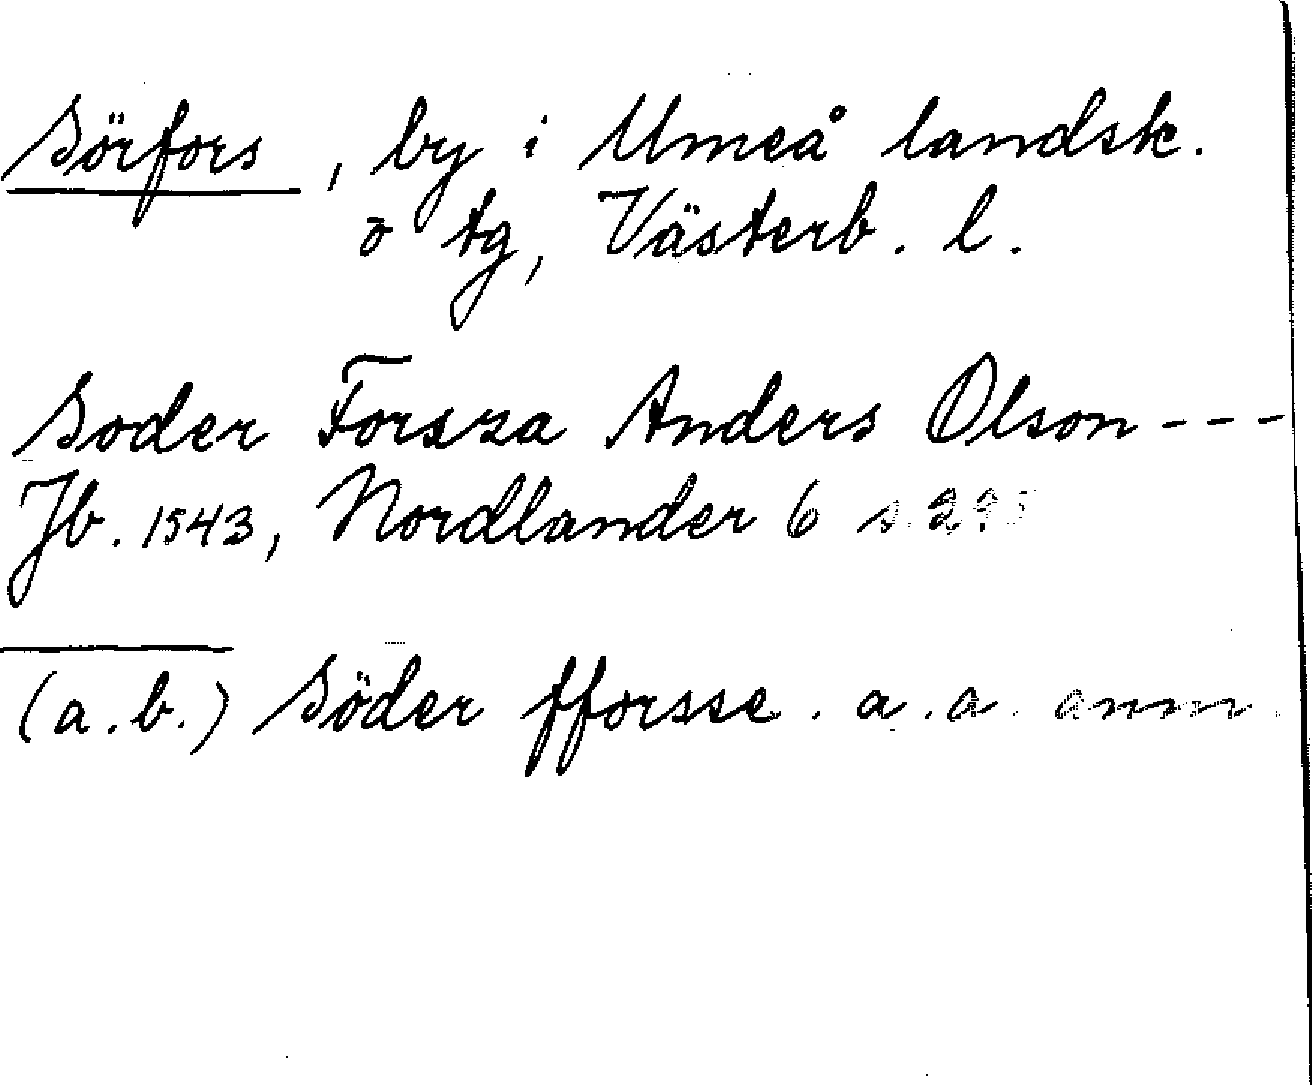 Sörfors, by i Umeå landsk.
o tg, Västerb. l.
Soder Forssa Anders Olson - - -
Jb. 1543, Nordlander 6 s. 295
(a.b.) Söder fforsse. a.a. anm.